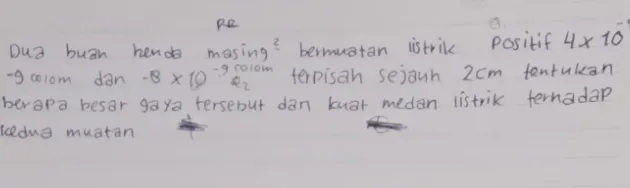 PR
Dua buah benda masing² bermuatan listrik positif 4 x 10
-9 colom dan -8 x 10 -9 colom terpisah sejauh 2cm tentukan
Q2
berapa besar gaya tersebut dan kuat medan listrik terhadap
kedua muatan